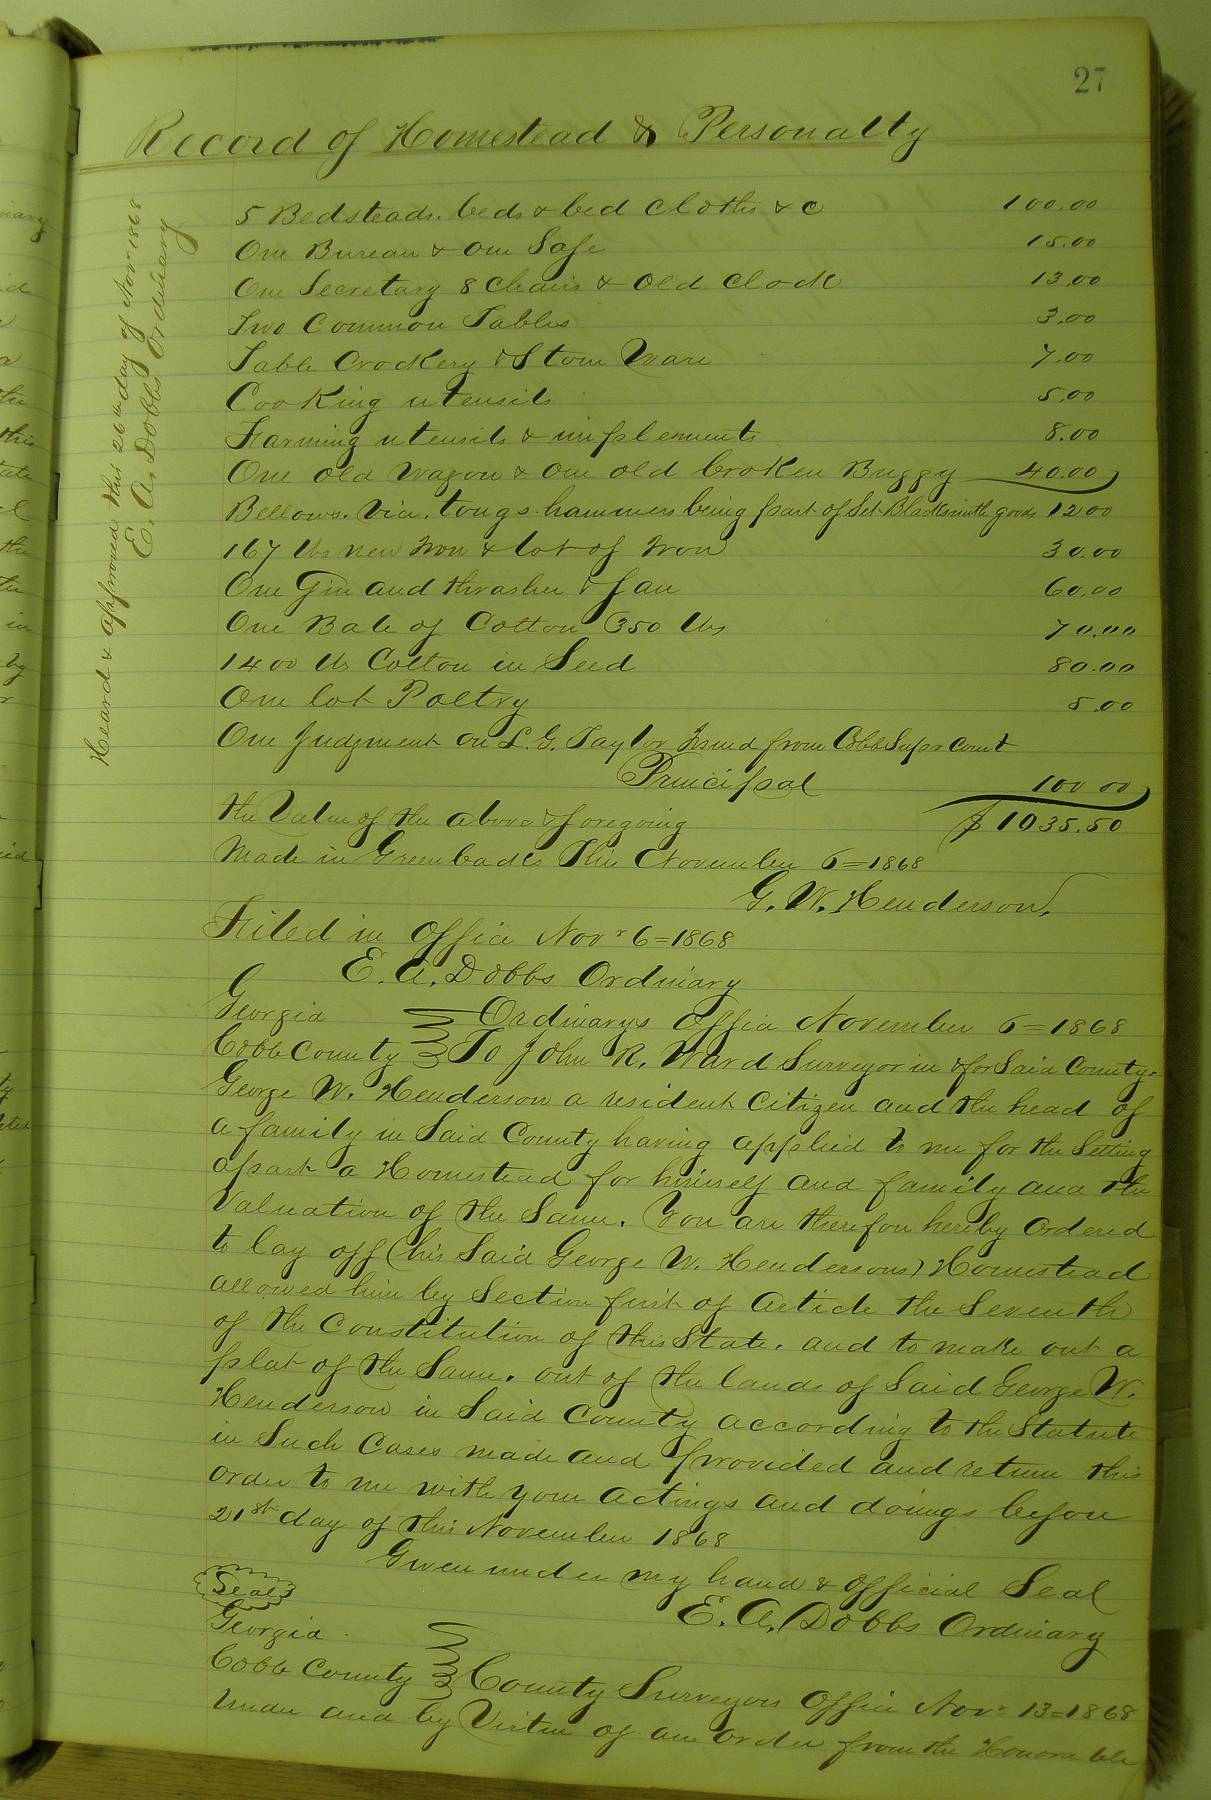 27
Record of Homestead & Personalty
5 Bedsteads. beds & bed cloths & c 100.00
One Bureau & one Safe 15.00
One Secretary 8 Chairs & old Clock 13.00
Two Common Tables 3.00
Table Crockery & Stone Ware 7.00
Cooking utensils 5.00
Farming utensils & implements 8.00
One old Wagon & one old broken Buggy 40.00
Bellows. Vice. tongs hammers being part of Set Blacksmith goods 12 00
167 lbs new Iron & lot of Iron 30.00
One Gin and thrasher & fan 60.00
One Bale of Cotton 350 lbs 70.00
1400 lb Cotton in Seed 80.00
One lot Poltry 5.00
One Judgment on L. G. Taylor Issued from Cobb Supr Court
Principal 100 00
the Value of the above & foregoing $1035.50
Made in Greenbacks This November 6=1868
G. W. Henderson.
Filed in Office Novr 6=1868
E. A. Dobbs Ordinary
Georgia Ordinarys Office November 6=1868
Cobb County To John R. Ward Surveyor in & for Said County.
George W. Henderson a resident Citizen and the head of
a family in Said County having applied to me for the Setting
apart a Homestead for himself and family and the
Valuation of the Same. You are therefore hereby Ordered
to lay off (his Said George W. Hendersons) Homestead
allowed him by Section first of Article the Seventh
of the Constitution of this State. and to make out a
plat of the Same. out of the lands of Said George W.
Henderson in Said County according to the Statute
in Such Cases made and provided and return this
order to me with your actings and doings before
21st day of this November 1868
Given under my hand & official Seal
Seal
E. A. Dobbs Ordinary
Georgia
Cobb County County Surveyors Office Novr 13=1868
Under and by Virtue of an order from the Honorable
Heard & approved this 26th day of Novr 1868
E. A. Dobbs Ordinary